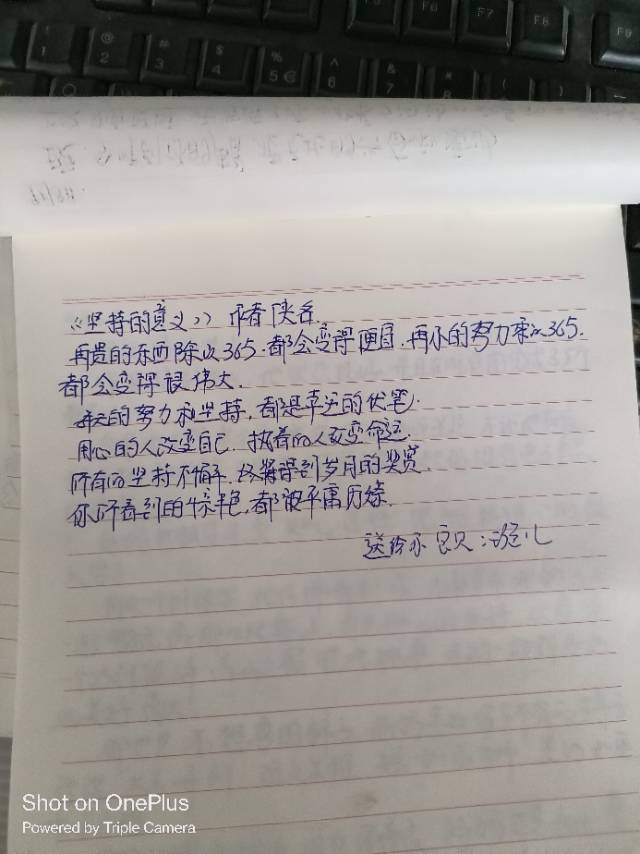 《坚持的意义》 作者
再贵的东西除以365.都会变得便宜.再小的努力乘以365.
都会变得很伟大.
每天的努力和坚持，都是幸运的伏笔.
用心的人改变自己.执着的人改变命运.
所有的坚持不懈.终将得到岁月的奖赏.
你所看到的惊艳，都被平庸历练.
送给
Shot on OnePlus
Powered by Triple Camera